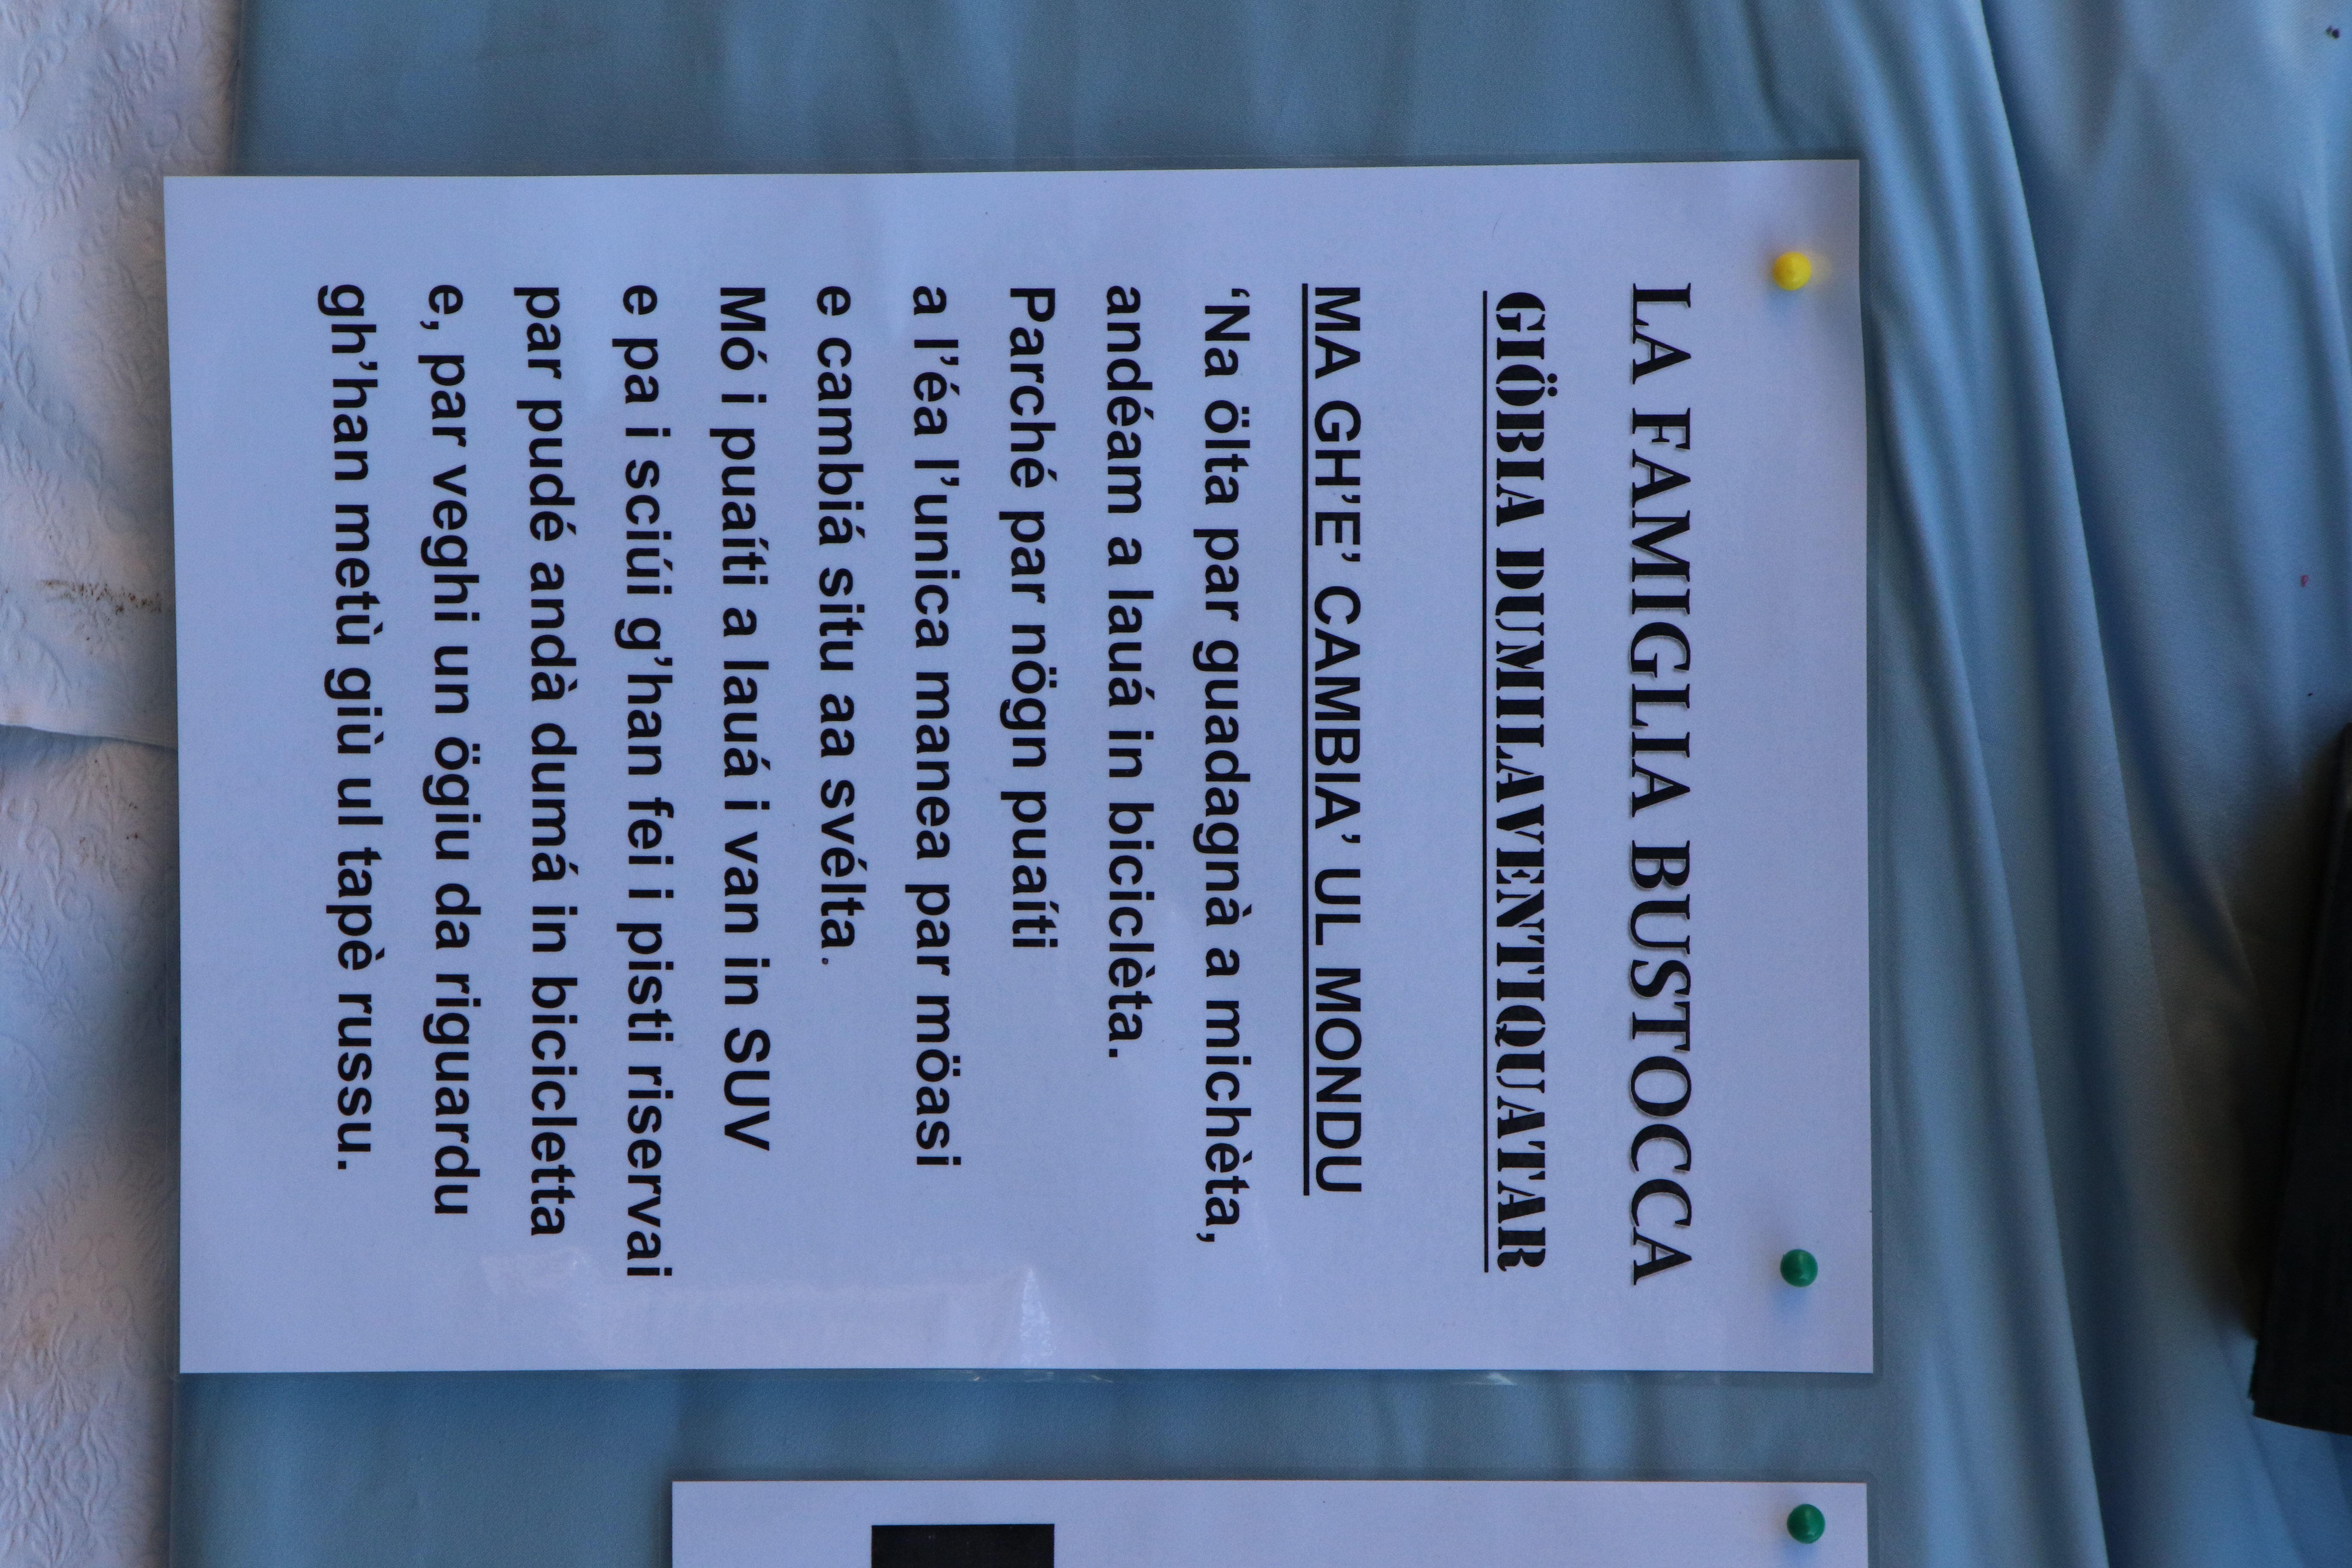 LA FAMIGLIA BUSTOCCA
GIÖBIA DUMILAVENTIQUATAR
MA GH'E' CAMBIA' UL MONDU
‘Na ölta par guadagnà a michèta,
andéam a lauá in biciclèta.
Parché par nögn puaíti
a l'éa l'unica manea par möasi
e cambiá situ aa svélta.
Mó i puaíti a lauá i van in SUV
e pa i sciúi g'han fei i pisti riservai
par pudé andà dumá in bicicletta
e, par veghi un ögiu da riguardu
gh'han metù giù ul tapè russu.